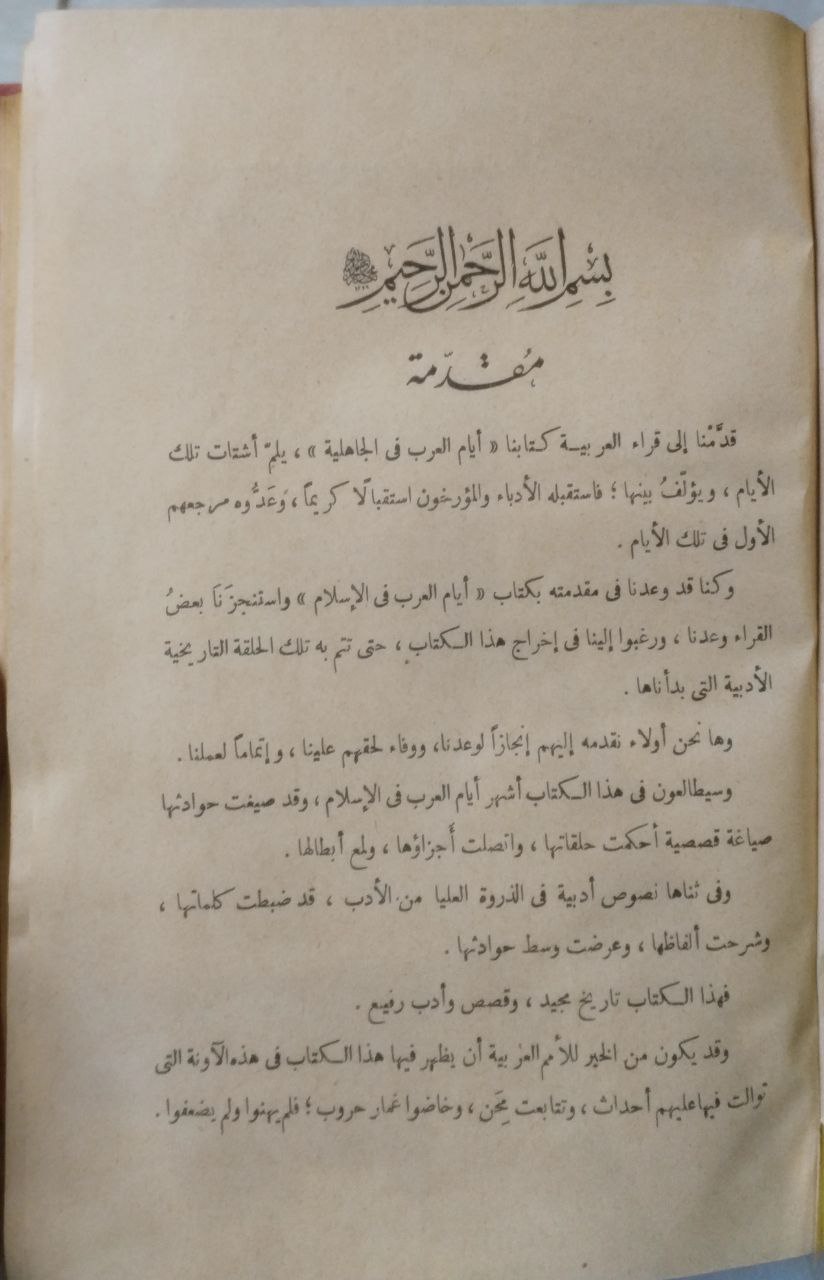 بِسْمِ اللَّهِ الرَّحْمٰنِ الرَّحِيمِ
مُقدّمة
قدَّمْنا إلى قراء العربية كتابنا « أيام العرب فى الجاهلية » ، يلمّ أشتات تلك
الأيام ، ويؤلّفُ بينها ؛ فاستقبله الأدباء والمؤرخون استقبالًا كريماً ، وَعَدُّوه مرجعهم
الأول فى تلك الأيام .
وكنا قد وعدنا فى مقدمته بكتاب « أيام العرب فى الإسلام » واستنجزَنَا بعضُ
القراء وعدنا ، ورغبوا إلينا فى إخراج هذا الكتاب ، حتى تتم به تلك الحلقة التاريخية
الأدبية التى بدأناها .
وها نحن أولاء نقدمه إليهم إنجازاً لوعدنا، ووفاء لحقهم علينا ، وإتماماً لعملنا .
وسيطالعون فى هذا الكتاب أشهر أيام العرب فى الإسلام ، وقد صيغت حوادثها
صياغة قصصية أحكمت حلقاتها ، واتصلت أَجزاؤها ، ولمع أبطالها .
وفى ثناها نصوص أدبية فى الذروة العليا من الأدب ، قد ضبطت كلماتها ،
وشرحت ألفاظها ، وعرضت وسط حوادثها .
فهذا الكتاب تاريخ مجيد ، وقصص وأدب رفيع .
وقد يكون من الخير للأمم العربية أن يظهر فيها هذا الكتاب فى هذه الآونة التى
توالت فيها عليهم أحداث ، وتتابعت مِحَن ، وخاضوا غمار حروب ؛ فلم يهنوا ولم يضعفوا .